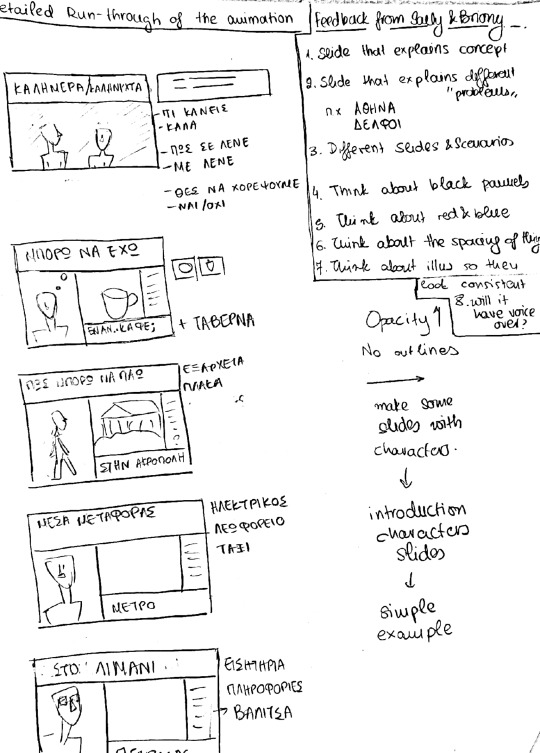 etailed Run-through of the animation
Feedback from Sally & Briony
1. Slide that explains concept
2. Slide that explains different
"problems"
πχ ΑΘΗΝΑ
ΔΕΛΦΟΙ
3. Different Slides & Scenarios
4. Think about black pannels
5. Think about red & blue
6. Think about the spacing of thing
7. Think about illus so they
look consistent
8. will it
have voice
over?
Opacity
No outlines
make some
slides with
characters.
introduction
characters
slides
simple
example
ΚΑΛΗΜΕΡΑ/ΚΑΛΗΝΥΧΤΑ
- ΤΙ ΚΑΝΕΙΣ
- ΚΑΛΑ
- ΠΩΣ ΣΕ ΛΕΝΕ
- ΜΕ ΛΕΝΕ
- ΘΕΣ ΝΑ ΧΟΡΕΨΟΥΜΕ
- ΝΑΙ/ΟΧΙ
ΜΠΟΡΩ ΝΑ ΕΧΩ
ΕΝΑΝ..ΚΑΦΕ;
+ ΤΑΒΕΡΝΑ
ΠΩΣ ΜΠΟΡΩ ΝΑ ΠΑΩ
ΣΤΗΝ ΑΚΡΟΠΟΛΗ
ΕΞΑΡΧΕΙΑ
ΠΛΑΚΑ
ΜΕΣΑ ΜΕΤΑΦΟΡΑΣ
ΜΕΤΡΟ
ΗΛΕΚΤΡΙΚΟΣ
ΛΕΩΦΟΡΕΙΟ
ΤΑΞΙ
ΣΤΟ ΛΙΜΑΝΙ
ΕΙΣΗΤΗΡΙΑ
ΠΛΗΡΟΦΟΡΙΕΣ
ΒΑΛΙΤΣΑ